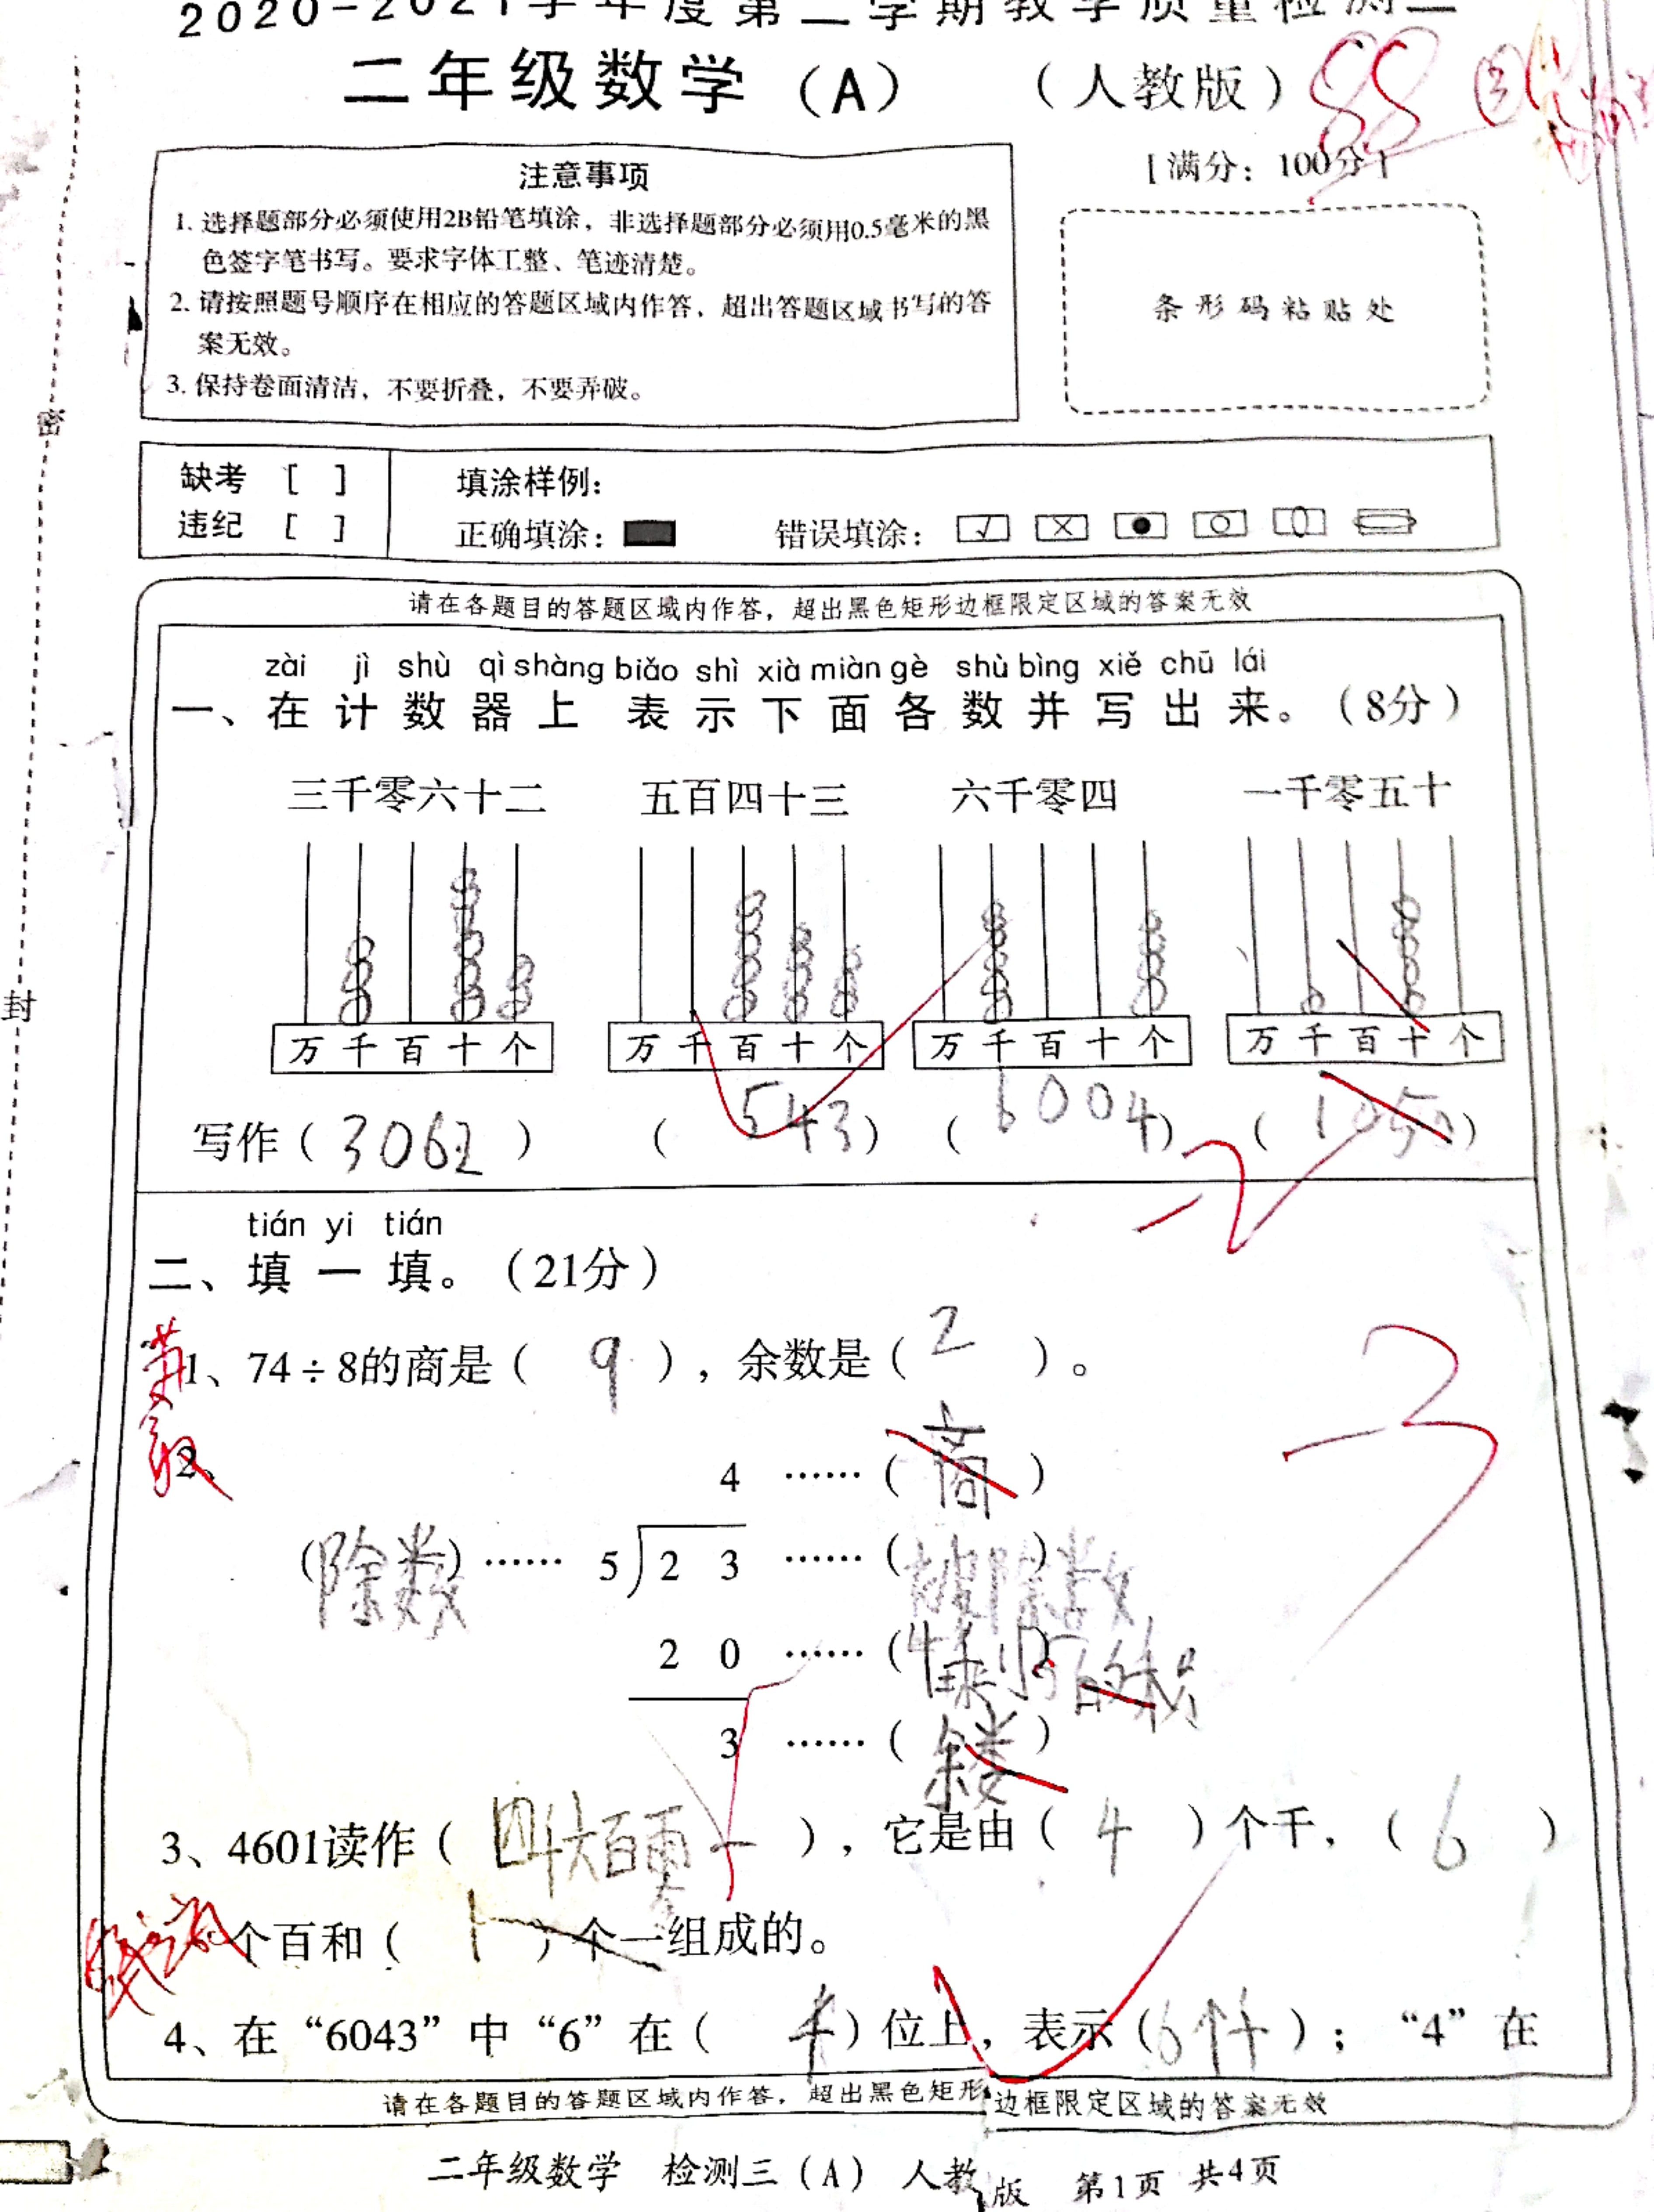 2020-2021学年度第二学期教学质量检测三
二年级数学（A）（人教版）
88
[满分：100分]
注意事项
1. 选择题部分必须使用2B铅笔填涂，非选择题部分必须用0.5毫米的黑
色签字笔书写。要求字体工整、笔迹清楚。
2. 请按照题号顺序在相应的答题区域内作答，超出答题区域书写的答
案无效。
3. 保持卷面清洁，不要折叠，不要弄破。
条形码粘贴处
密
缺考 [ ] 填涂样例：
违纪 [ ] 正确填涂： 错误填涂：
请在各题目的答题区域内作答，超出黑色矩形边框限定区域的答案无效
zài jì shù qì shàng biǎo shì xià miàn gè shù bìng xiě chū lái
一、在计数器上 表示下面各数并写出来。（8分）
三千零六十二 五百四十三 六千零四 一千零五十
封
万千百十个 万千百十个 万千百十个 万千百十个
写作（3062）（543）（6004）（1050）
-2
tián yi tián
二、填一填。（21分）
-3
1、74÷8的商是（9），余数是（2）。
2、
4 ……（商）
（除数）…… 5 23 ……（被除数）
20 ……（4乘5的积）
3 ……（余数）
3、4601读作（四千六百零一），它是由（4）个千，（6）
个百和（1）个一组成的。
4、在“6043”中“6”在（千）位上，表示（6个千）；“4”在
请在各题目的答题区域内作答，超出黑色矩形边框限定区域的答案无效
二年级数学 检测三（A） 人教版 第1页 共4页